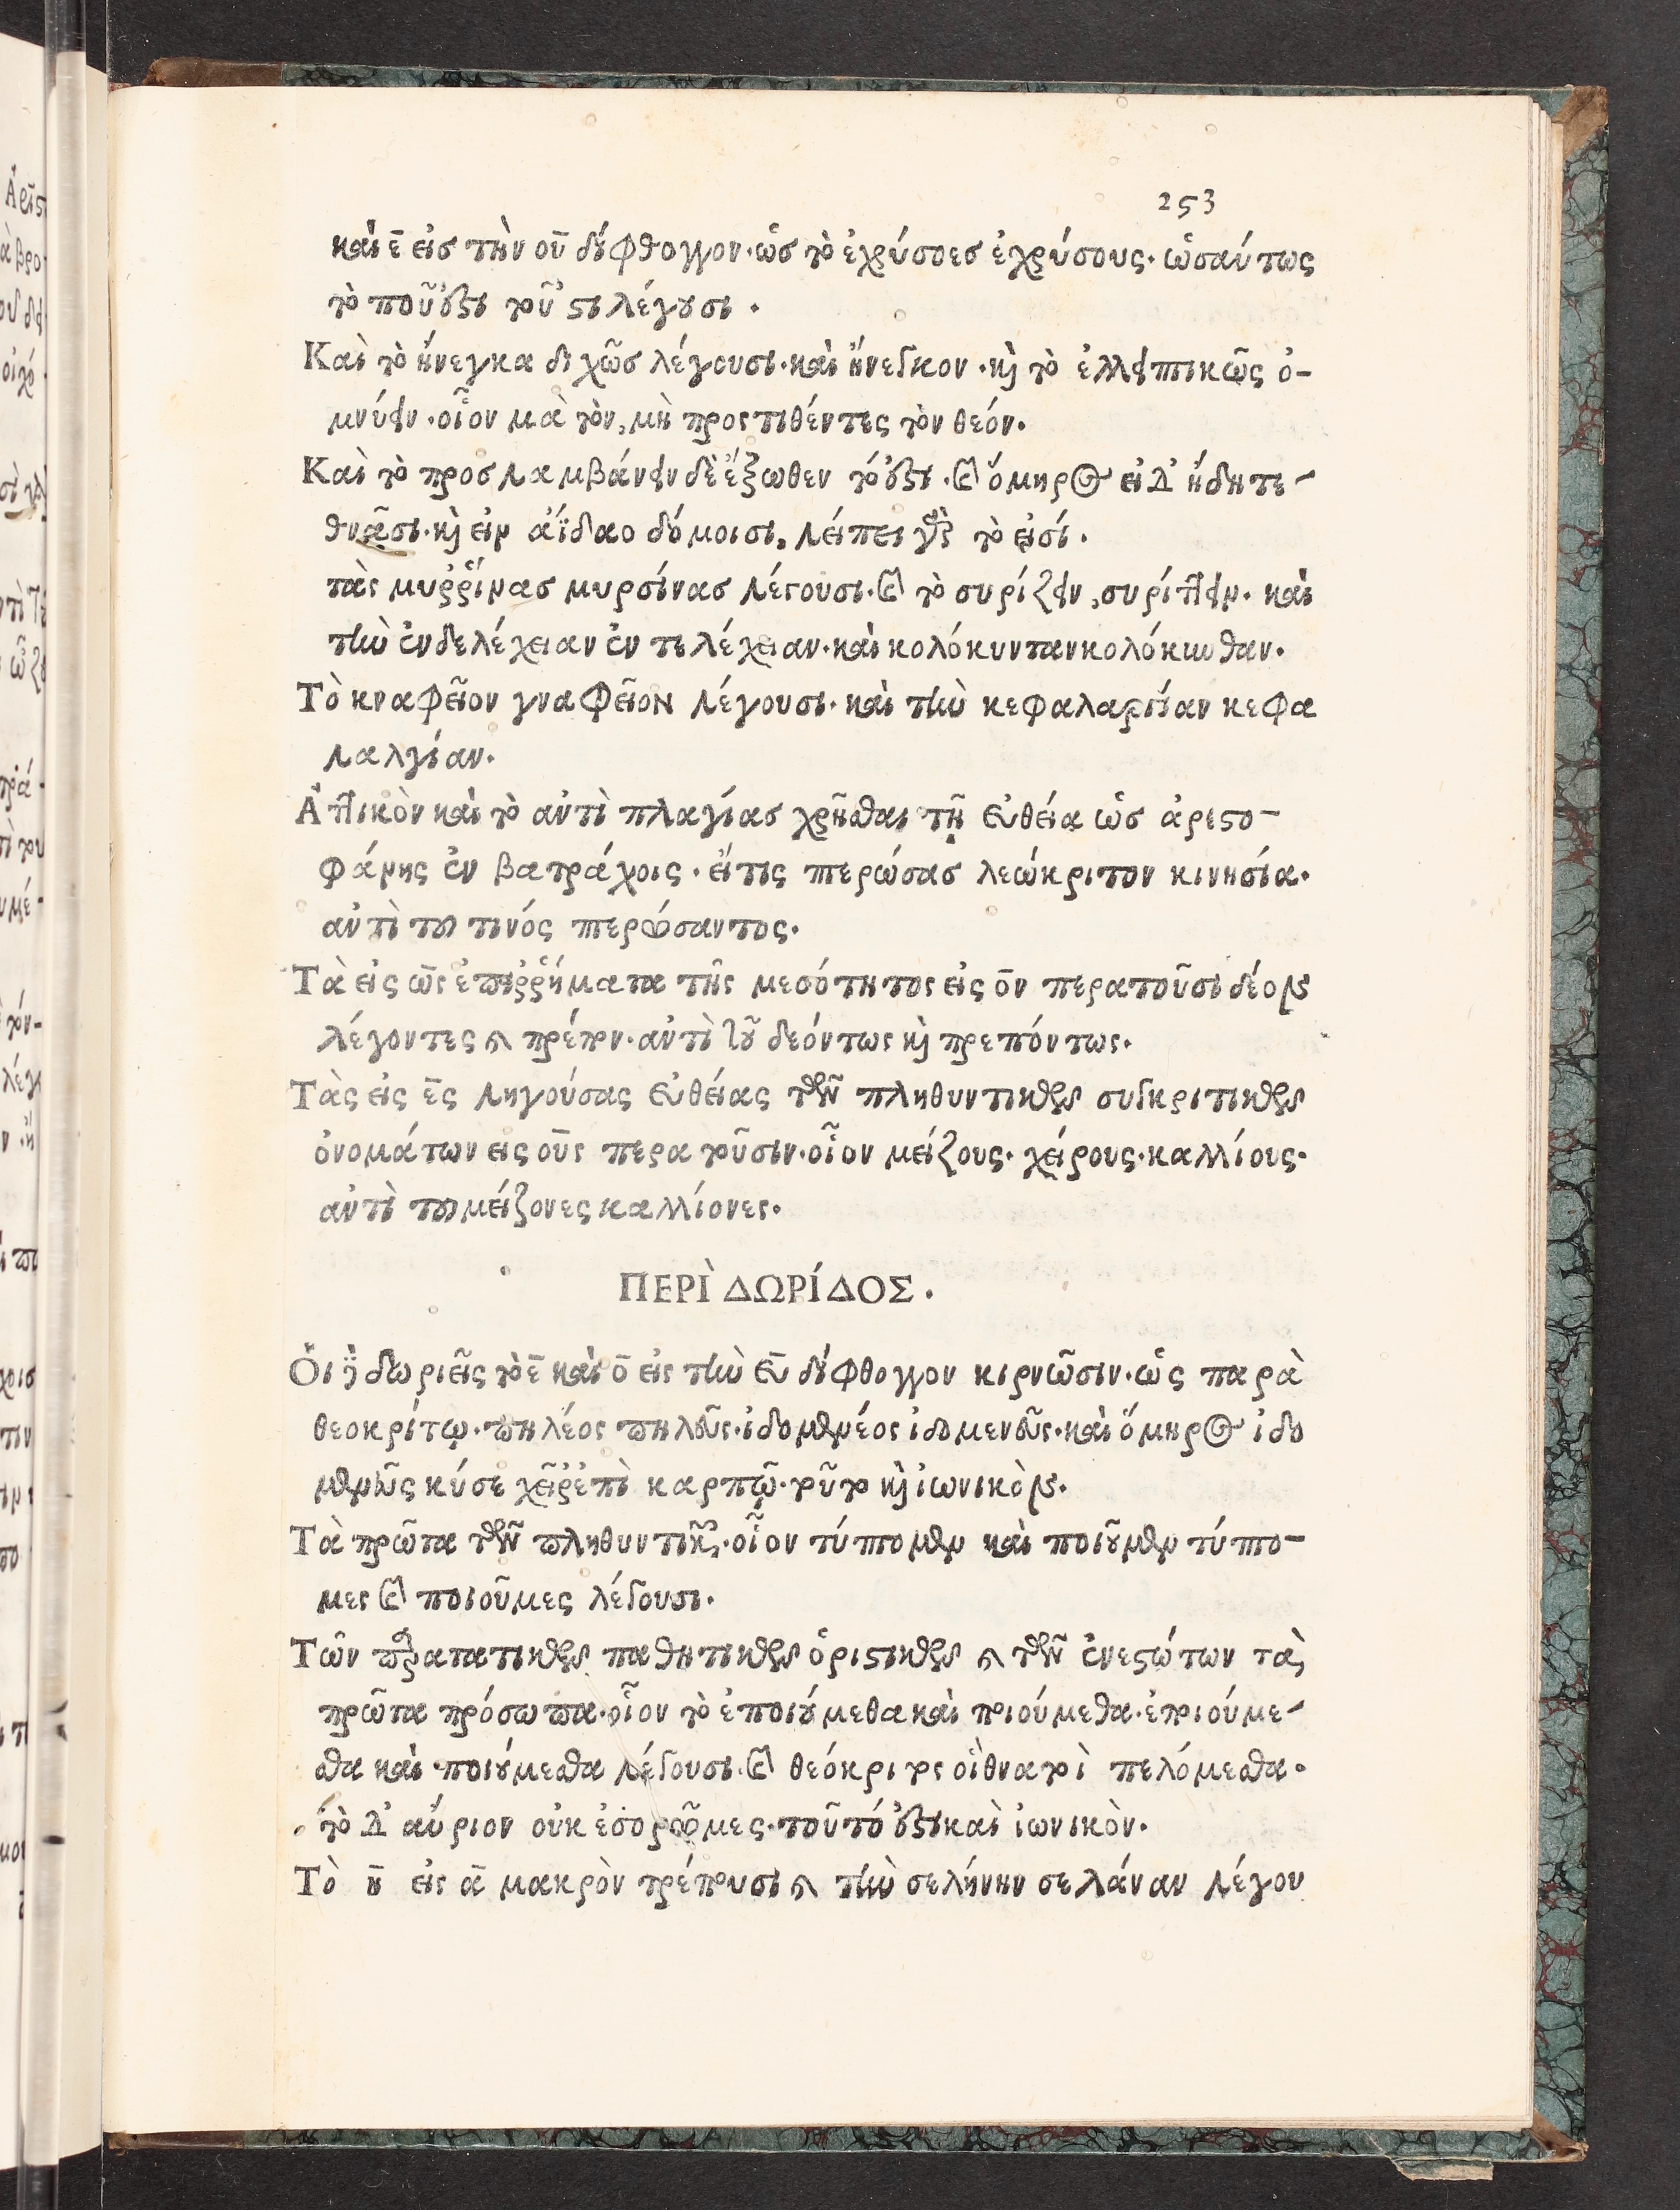 253
καὶ ε̄ εἰσ τὴν οῡ δίφθογγον·ὡσ τὸ ἐχρύσοεσ ἐχρύσους·ὡσαύτως
τὸ ποῦ ἐστι τοῦ στι λέγουσι·
Καὶ τὸ ἤνεγκα διχῶσ λέγουσι·καὶ ἤνεγκον·κὴ τὸ ἐλλειπτικῶς ὀ-
μνύειν·οἷον μὰ τὸν, μὴ προςτιθέντες τὸν θεόν.
Καὶ τὸ προσλαμβάνειν δὲ ἔξωθεν τό ἐστι·καὶ ὅμηρος εἰ δ' ἤδη τε-
θνᾶσι·καὶ εἰν ἀΐδαο δόμοισι, λείπει γὰρ τὸ εἰσί.
τὰς μυῤῥίνασ μυρσίνασ λέγουσι·καὶ τὸ συρίζειν, συρίττειν·καὶ
τὴν ἐνδελέχειαν ἐντελέχειαν·καὶ κολόκυνταν κολόκυνθαν.
Τὸ κναφεῖον γναφεῖον λέγουσι·καὶ τὴν κεφαλαργίαν κεφα
λαλγίαν.
Ἀττικὸν καὶ τὸ ἀντὶ πλαγίασ χρῆσθαι τῇ εὐθεία ὡσ ἀριστο-
φάνης ἐν βατράχοις·εἴ τις πτερώσασ λεώκριτον κινησία·
ἀντὶ του τινός πτερώσαντος.
Τὰ εἰς ω̄ς ἐπιῤῥήματα τῆς μεσότητος εἰς ο̄ν περατοῦσι δέον
λέγοντες καὶ πρέπον·ἀντὶ τοῦ δεόντως καὶ πρεπόντως.
Τὰς εἰς ε̄ς ληγούσας εὐθείας τῶν πληθυντικῶν συγκριτικῶν
ὀνομάτων εἰς οῡς περατοῦσιν·οἷον μείζους·χείρους·καλλίους·
ἀντὶ του μείζονες καλλίονες.
ΠΕΡῚ ΔΩΡΊΔΟΣ.
Ὅι δὲ δωριεῖς τὸ ε̄ καὶ ο̄ εἰς τὴν εῡ δίφθογγον κιρνῶσιν·ὡς παρὰ
θεοκρίτῳ·πηλέος πηλεῦς·ἰδομενέος ἰδομενεῦς·καὶ ὅμηρος ἰδο
μενεῦς κύσε χεῖρ ἐπὶ καρπῷ·τοῦτο καὶ ἰωνικὸν.
Τὰ πρῶτα τῶν πληθυντικῶν·οἷον τύπτομεν καὶ ποιοῦμεν τύπτο-
μες καὶ ποιοῦμες λέγουσι.
Τῶν παρατατικῶν παθητικῶν ὁριστικῶν καὶ τῶν ἐνεστώτων τὰ
πρῶτα πρόσωπα·οἷον τὸ ἐποιούμεθα καὶ ποιούμεθα·ἐποιούμε-
σθα καὶ ποιούμεσθα λέγουσι·καὶ θεόκριτος οἳ θνατοὶ πελόμεσθα·
τὸ δ' αὔριον οὐκ ἐσορῶμες·τοῦτό ἐστι καὶ ἰωνικὸν.
Τὸ η̄ εἰς ᾱ μακρὸν τρέπουσι καὶ τὴν σελήνην σελάναν λέγου